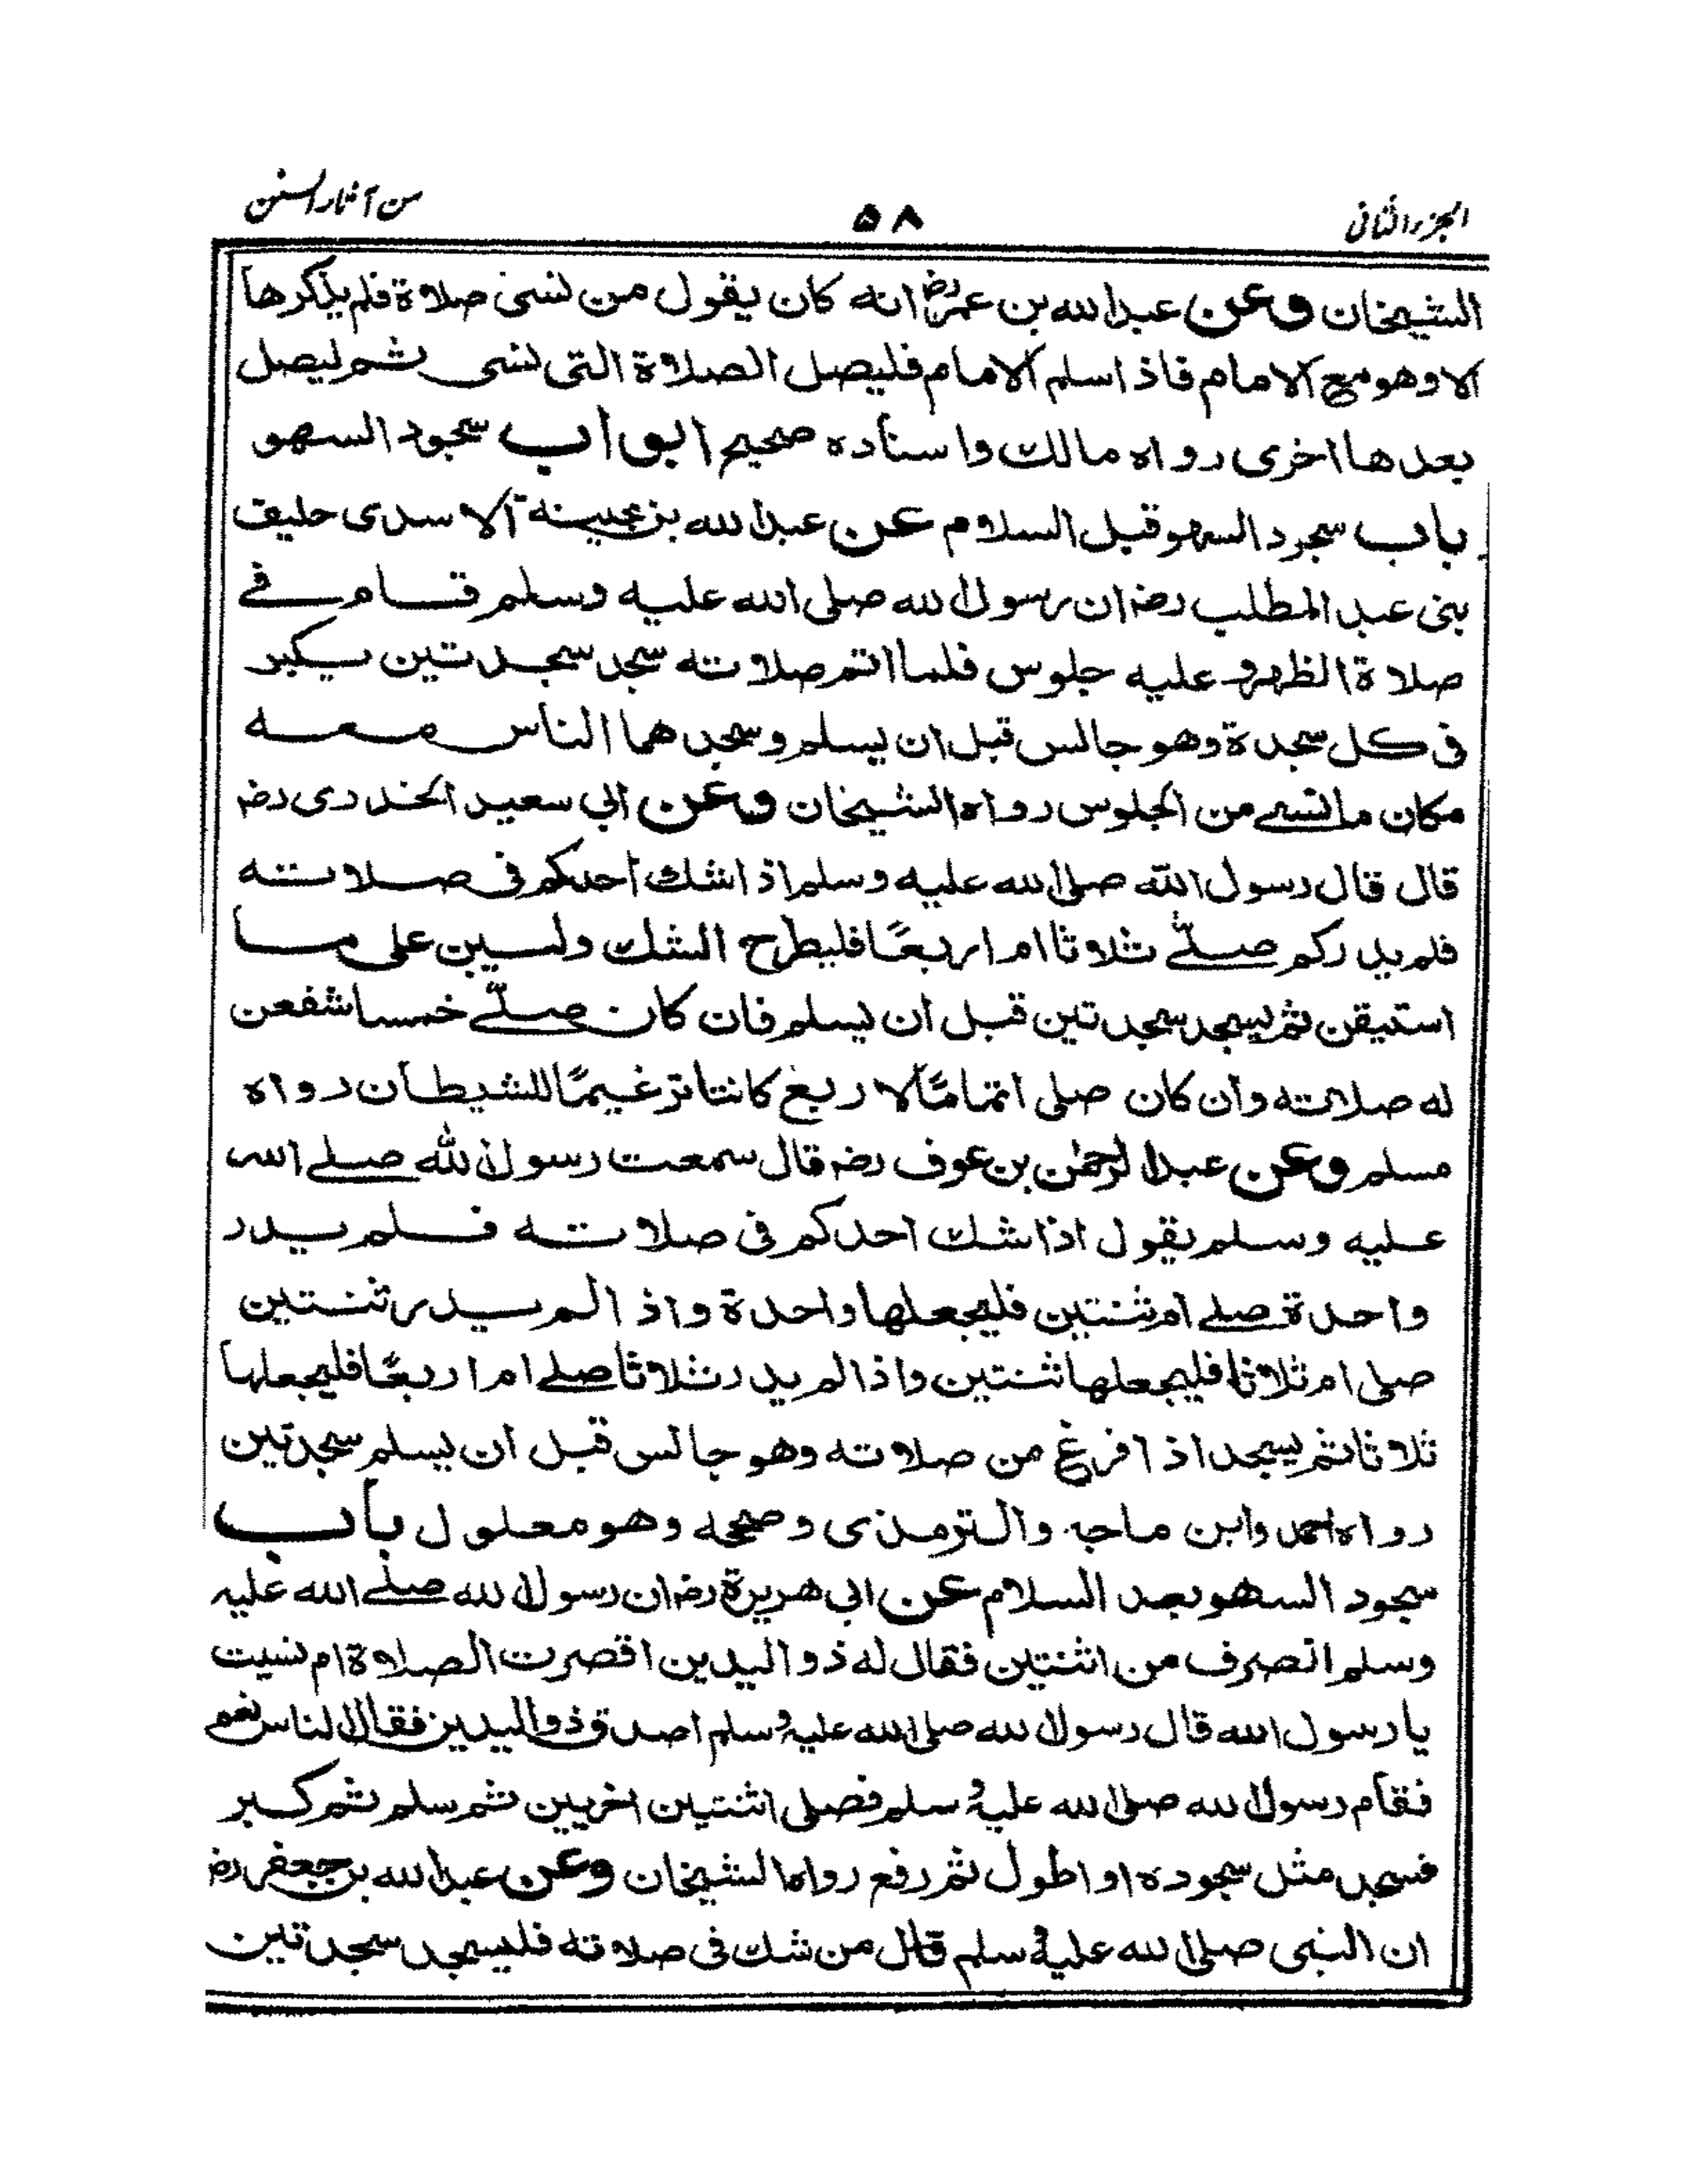 الجزء الثانى ٥٨ من آثار السنن
الشيخان وعن عبد الله بن عمر رضـ انه كان يقول من نسى صلاة فلم يذكرها
الا وهو مع الامام فاذا سلم الامام فليصل الصلاة التى نسى ثم ليصل
بعدها اخرى رواه مالك واسناده صحيح ابواب سجود السهو
باب سجود السهو قبل السلام عن عبد الله بن بحينة الاسدى حليف
بنى عبد المطلب رضـ ان رسول الله صلى الله عليه وسلم قام فے
صلاة الظهر و عليه جلوس فلما اتم صلاته سجد سجدتين يكبر
فى كل سجدة وهو جالس قبل ان يسلم وسجدهما الناس معه
مكان ما نسے من الجلوس رواه الشيخان وعن ابي سعيد الخدرى رضـ
قال قال رسول الله صلى الله عليه وسلم اذا شك احدكم فى صلاته
فلم يدر كم صلّے ثلاثا ام اربعًا فليطرح الشك وليبن على ما
استيقن ثم يسجد سجدتين قبل ان يسلم فان كان صلّے خمسا شفعن
له صلاته وان كان صلى اتمامًا لاربع كانتا ترغيمًا للشيطان رواه
مسلم وعن عبد الرحمٰن بن عوف رضـ قال سمعت رسول الله صلے الله
عليه وسلم يقول اذا شك احدكم فى صلاته فلم يدر
واحدة صلے ام ثنتين فليجعلها واحدة واذا لم يدر ثنتين
صلى ام ثلاثا فليجعلها ثنتين واذا لم يدر ثلاثا صلے ام اربعًا فليجعلها
ثلاثا ثم يسجد اذا فرغ من صلاته وهو جالس قبل ان يسلم سجدتين
رواه احمد وابن ماجه والترمذى وصححه وهو معلول باب
سجود السهو بعد السلام عن ابي هريرة رضـ ان رسول الله صلے الله عليه
وسلم انصرف من اثنتين فقال له ذو اليدين اقصرت الصلاة ام نسيت
يا رسول الله قال رسول الله صلى الله عليه وسلم اصدق ذو اليدين فقال الناس نعم
فقام رسول الله صلى الله عليه وسلم فصلى اثنتين اخريين ثم سلم ثم كبر
فسجد مثل سجوده او اطول ثم رفع رواه الشيخان وعن عبد الله بن جعفر رضـ
ان النبى صلى الله عليه وسلم قال من شك فى صلاته فليسجد سجدتين